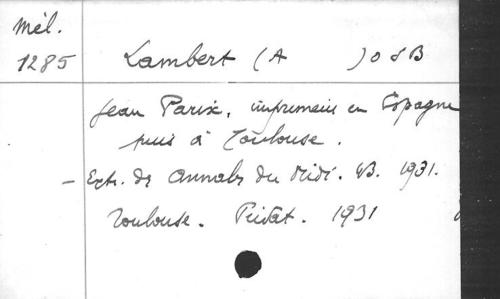 Mél.
1285
Lambert (A ) O S B
Jean Parix, imprimeur en Espagne
puis à Toulouse.
– Extr. des Annales du Midi. 1931.
Toulouse. Privat. 1931